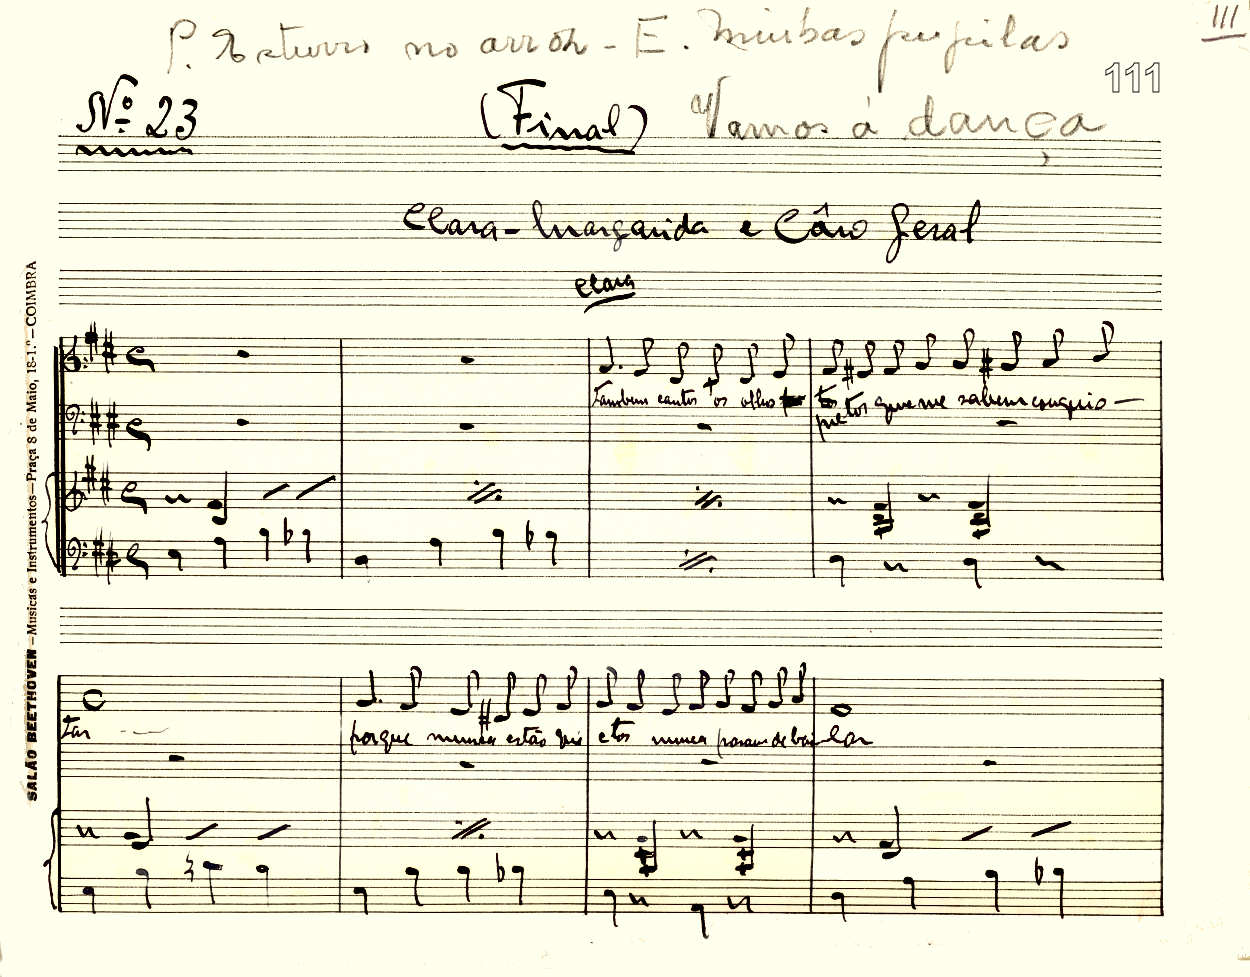 III
P. no arroz - E. Minhas pupilas
111
Nº 23 (Final) Vamos á dança
Clara - Margarida e Côro Geral
Clara
Tambem cantos os olhos pretos que me sabem conquis -
tar porque nunca estão qui etos nunca param de bai lar
SALÃO BEETHOVEN - Musicas e Instrumentos - Praça 8 de Maio, 18-1.º - COIMBRA